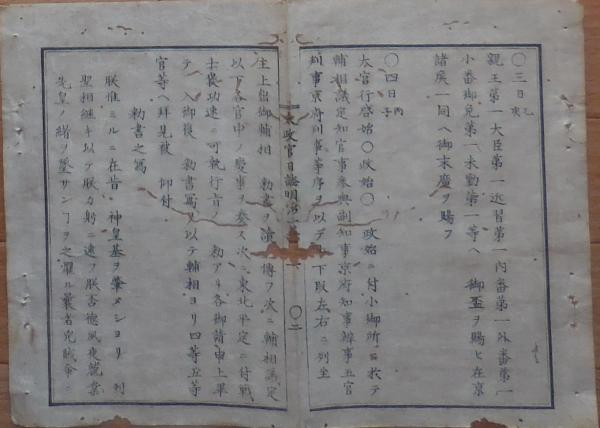 〇三日 乙亥
親王第一大臣第一近習第一内番第一外番第一
小番御免第一未勤第一等ヘ 御盃ヲ賜ヒ在京
諸矦一同ヘ御末廣ヲ賜フ
〇四日 丙子
太官行啓始〇政始〇 政始ニ付小御所ニ於テ
輔相議定知官事参與副知事京府知事辨事五官
判事京府判事等序ヲ以テ 下段左右ニ列坐
太政官日誌明治二年
〇二
主上出御輔相 勅書ヲ 傳フ次ニ輔相議定
以下各官中ノ慶事ヲ奏ス次ニ東北平定ニ付戰
士喪功速ニ可執行旨ノ 勅アリ各御請申上畢
テ 入御後 勅書寫ヲ以テ輔相ヨリ四等五等
官等ヘ拜見被 仰付
勅書之寫
朕惟ミルニ在昔 神皇基ヲ肇メシヨリ 列
聖相繼キ以テ朕カ躬ニ逮フ朕否德夙夜兢業
先皇ノ緒ヲ墜サンヿヲ之懼ル曩者兇賊命